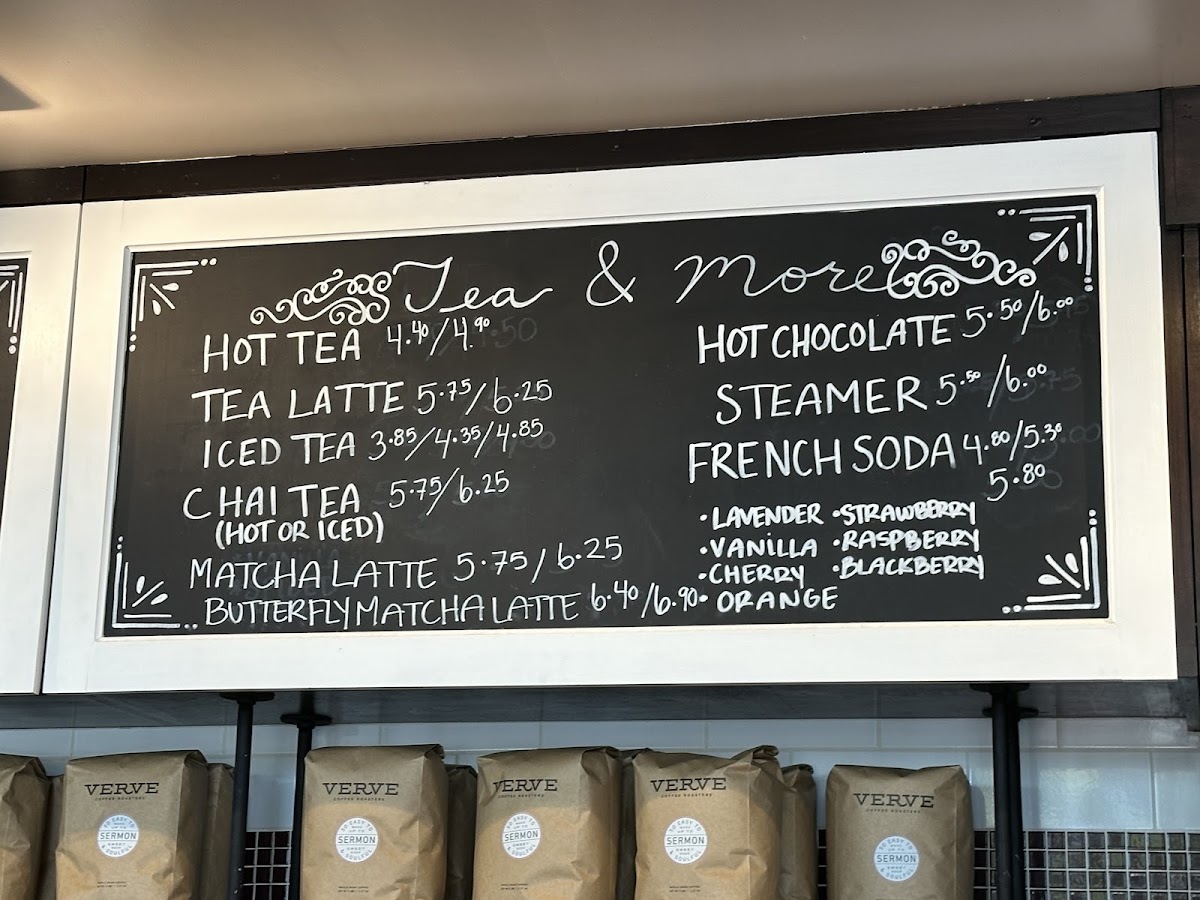 Tea & More
HOT TEA 4.40/4.90
TEA LATTE 5.75/6.25
ICED TEA 3.85/4.35/4.85
CHAI TEA 5.75/6.25
(HOT OR ICED)
MATCHA LATTE 5.75/6.25
BUTTERFLY MATCHA LATTE 6.40/6.90
HOT CHOCOLATE 5.50/6.00
STEAMER 5.50/6.00
FRENCH SODA 4.80/5.30
5.80
•LAVENDER •STRAWBERRY
•VANILLA •RASPBERRY
•CHERRY •BLACKBERRY
•ORANGE
VERVE
COFFEE ROASTERS
SERMON
VERVE
COFFEE ROASTERS
SO EASY TO
SERMON
SWEET
& SOULFUL
VERVE
COFFEE ROASTERS
SERMON
VERVE
COFFEE ROASTERS
SO EASY TO
SERMON
SWEET
& SOULFUL
VERVE
COFFEE ROASTERS
SERMON